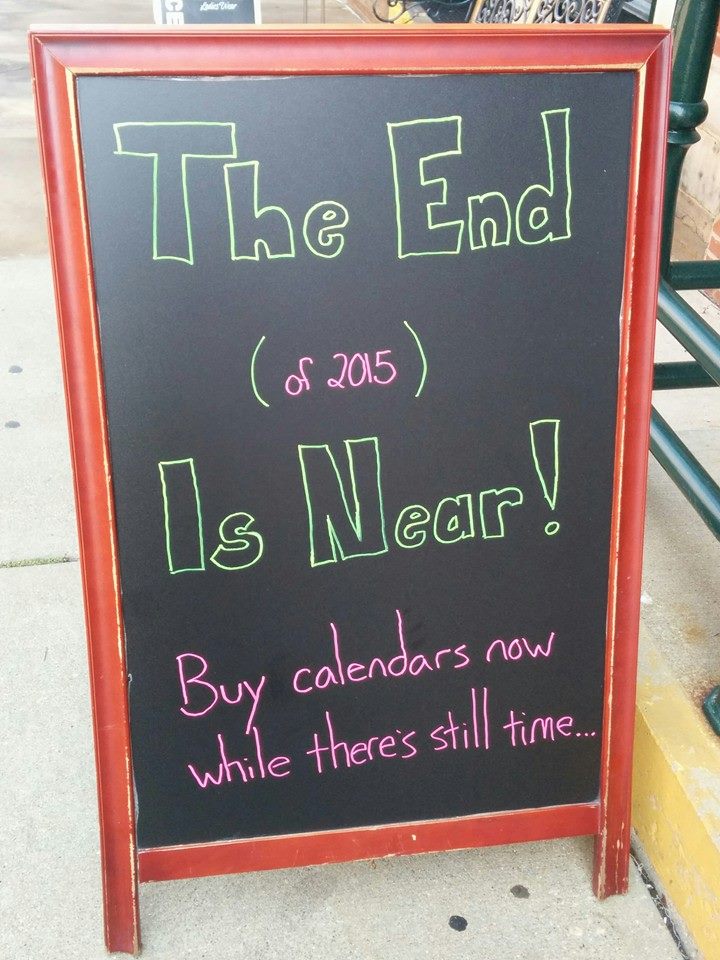 Ladies Wear
The End
(of 2015)
Is Near!
Buy calendars now
while there's still time...